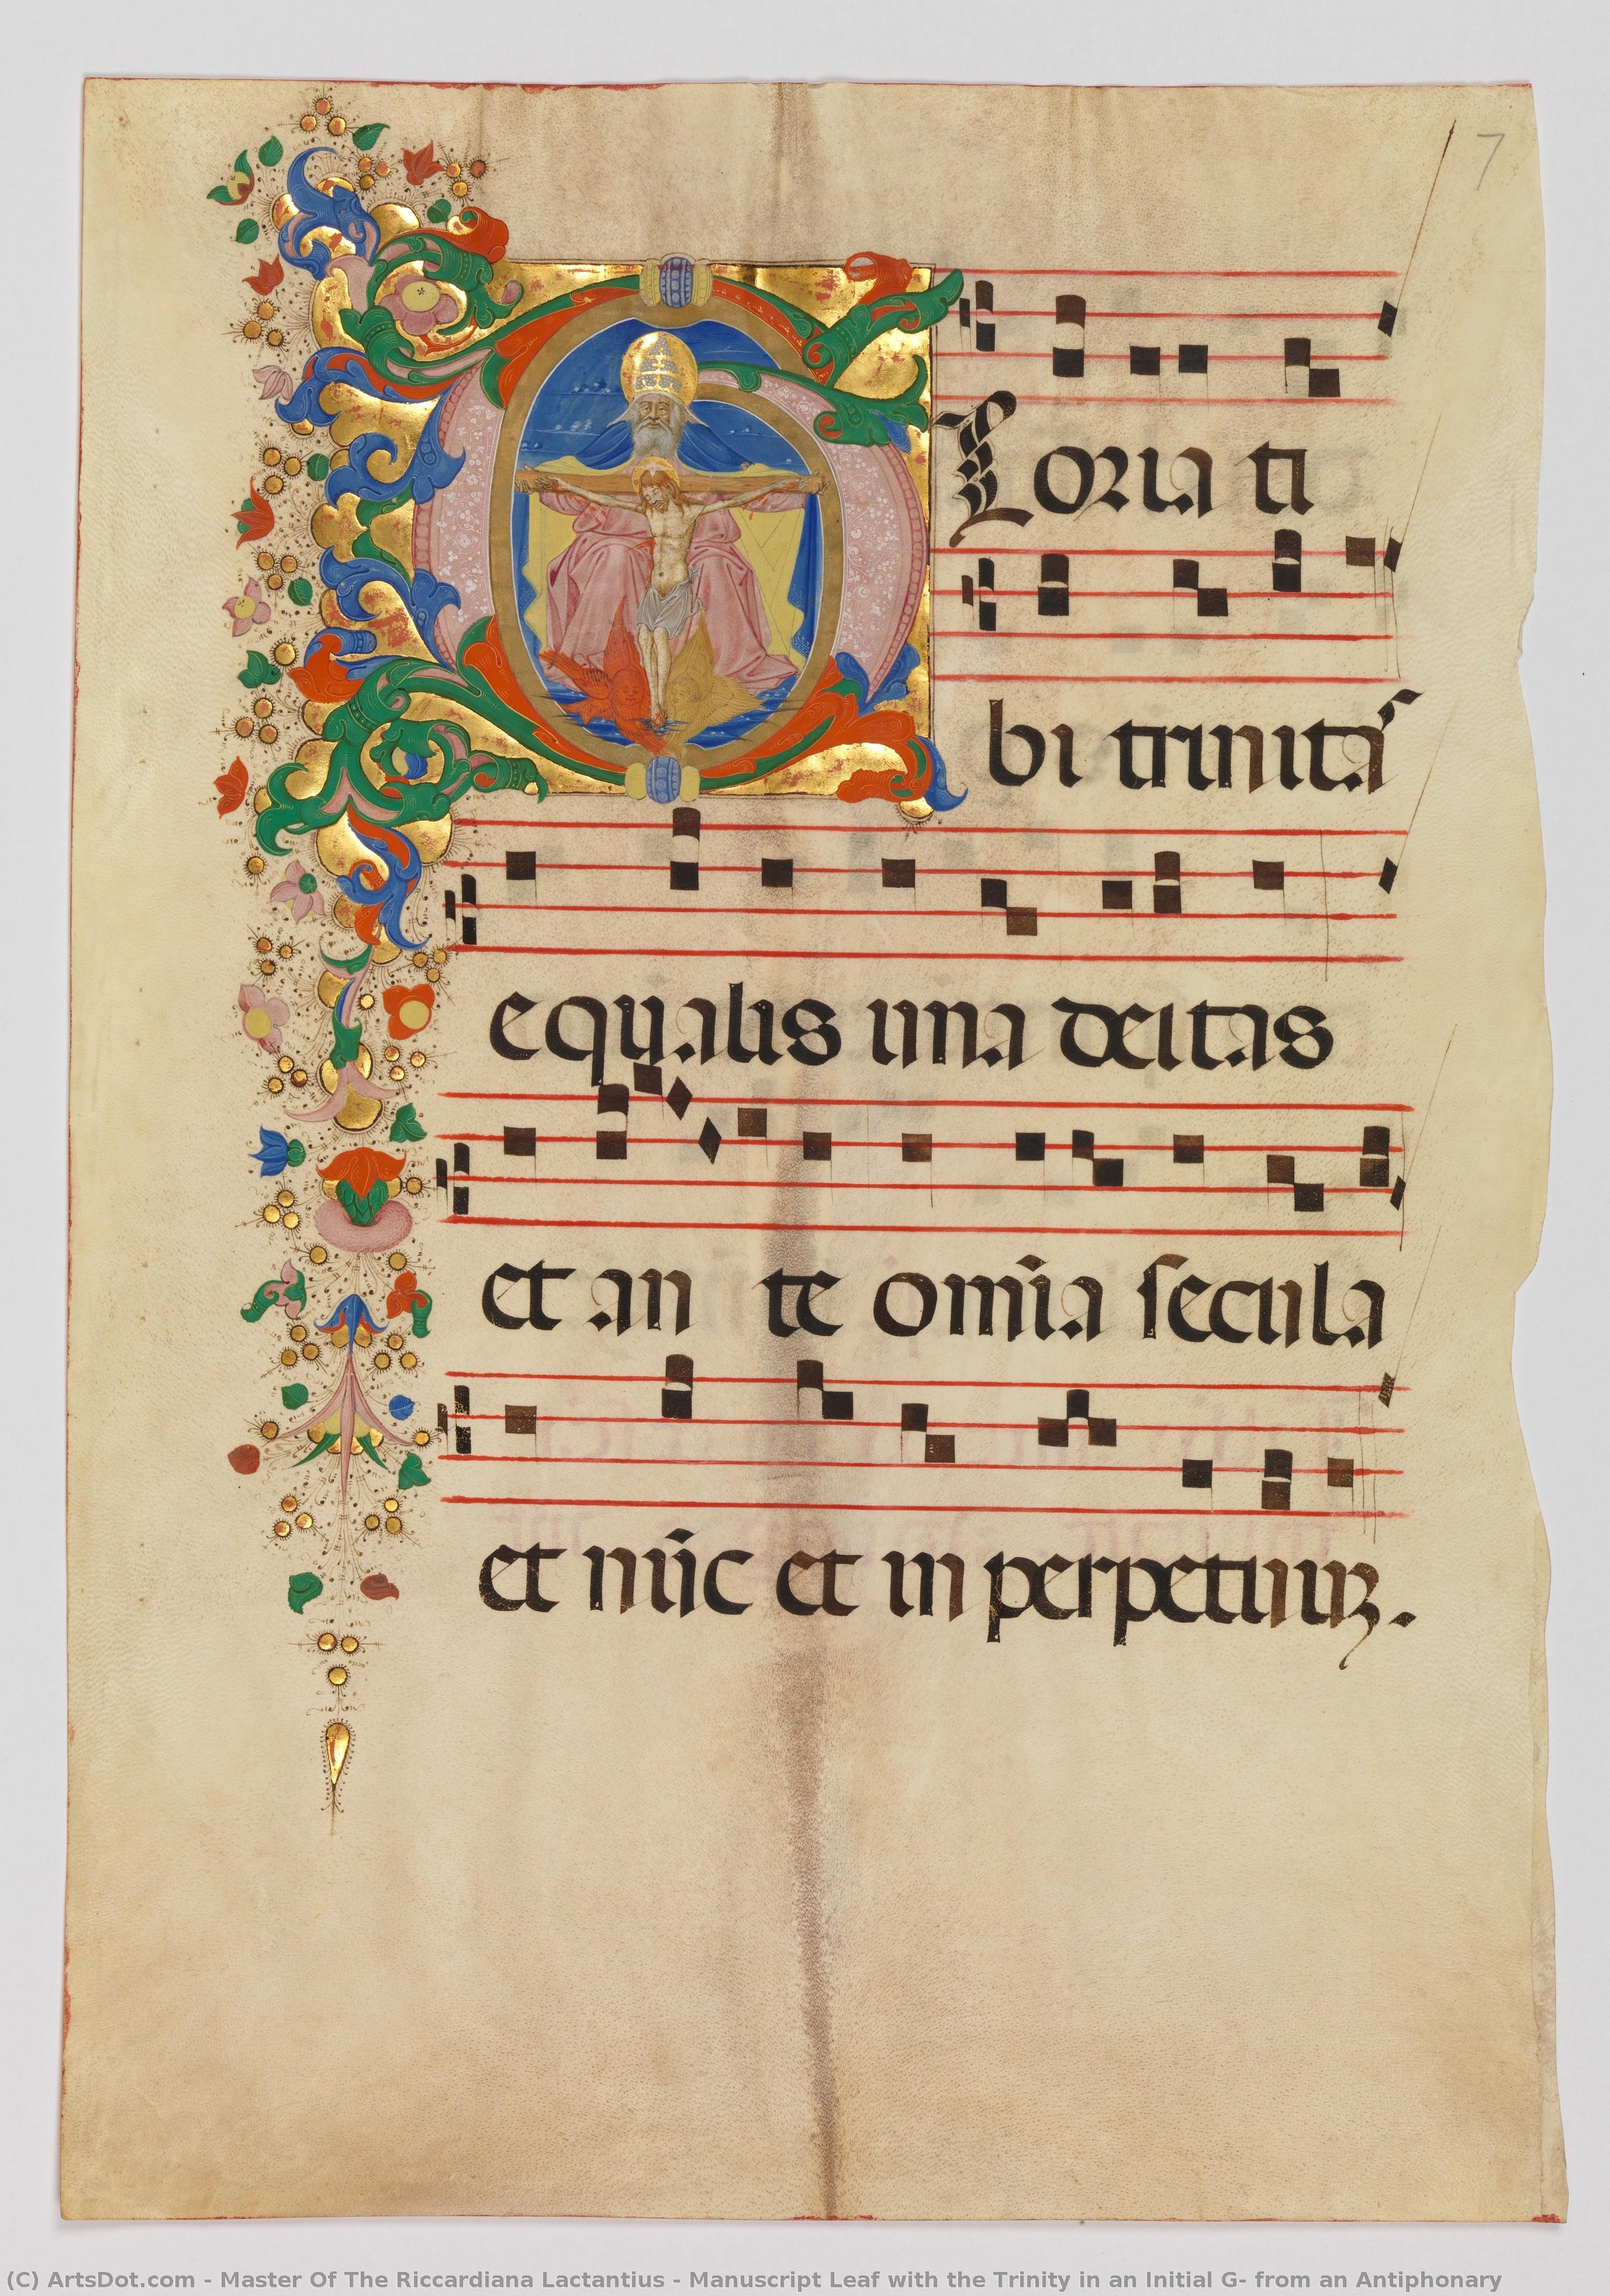 7
GLoria ti
bi trinitās
equalis una deitas
et an te om̄ia secula
et nūc et in perpetuuꝫ.
(C) ArtsDot.com - Master Of The Riccardiana Lactantius - Manuscript Leaf with the Trinity in an Initial G- from an Antiphonary